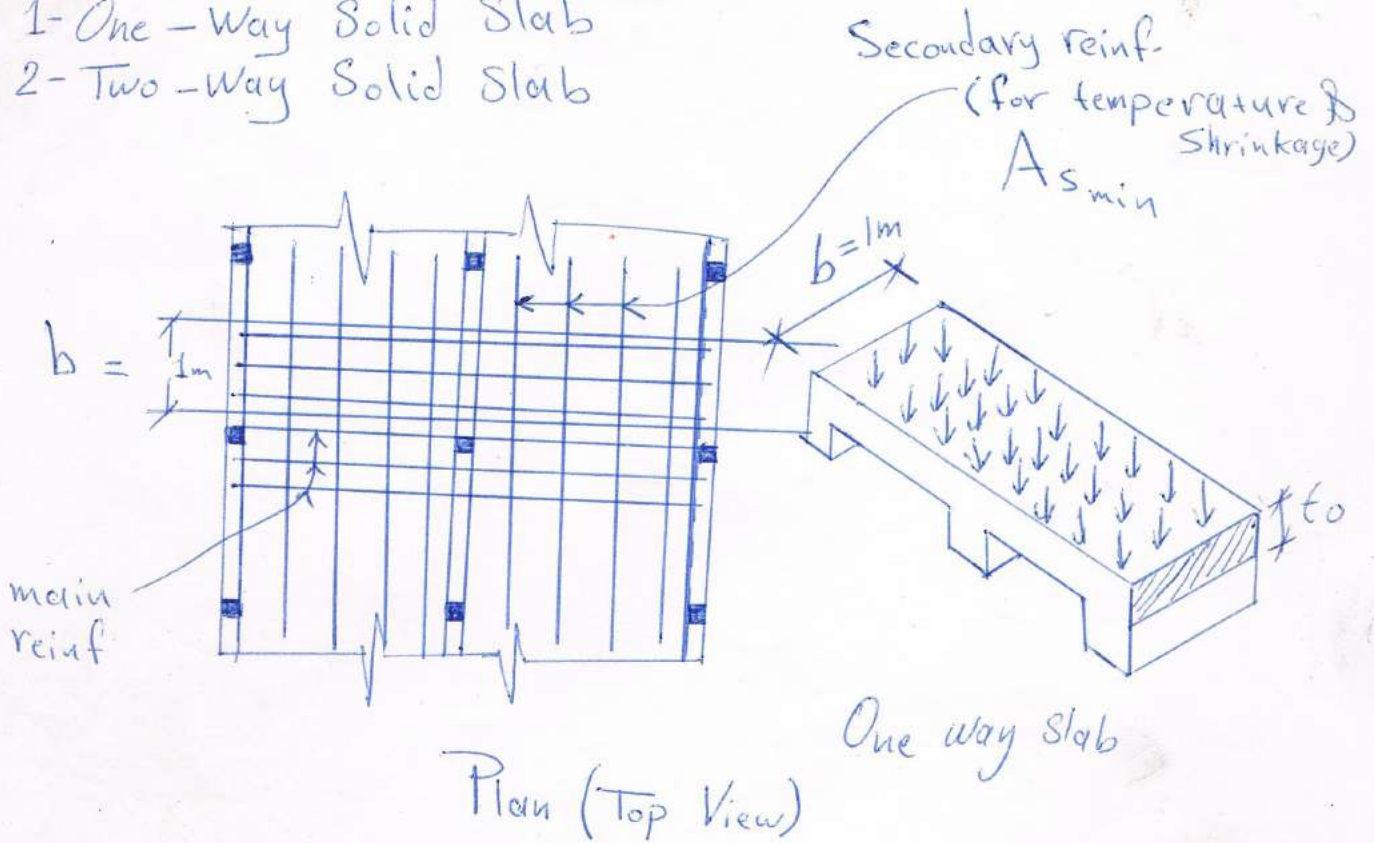 1- One - Way Solid Slab
2- Two - Way Solid Slab
Secondary reinf.
(for temperature &
Shrinkage)
As min
b = 1m
b = 1m
to
main
reinf
One way slab
Plan (Top View)